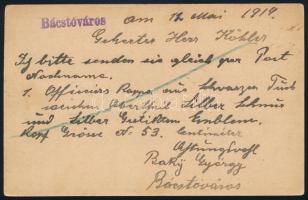 Bácstóváros
am 12 Mai 1914.
Geherter Herr Köhler
Ich bitte senden sie gleich per Post
Nachname.
1. Officiers Kappe aus schwarzen Tuch
Silber
und Silber Emblem.
Kopf Grösse N 53. Centimeter
Achtungsvoll
Baky György
Bácstóváros